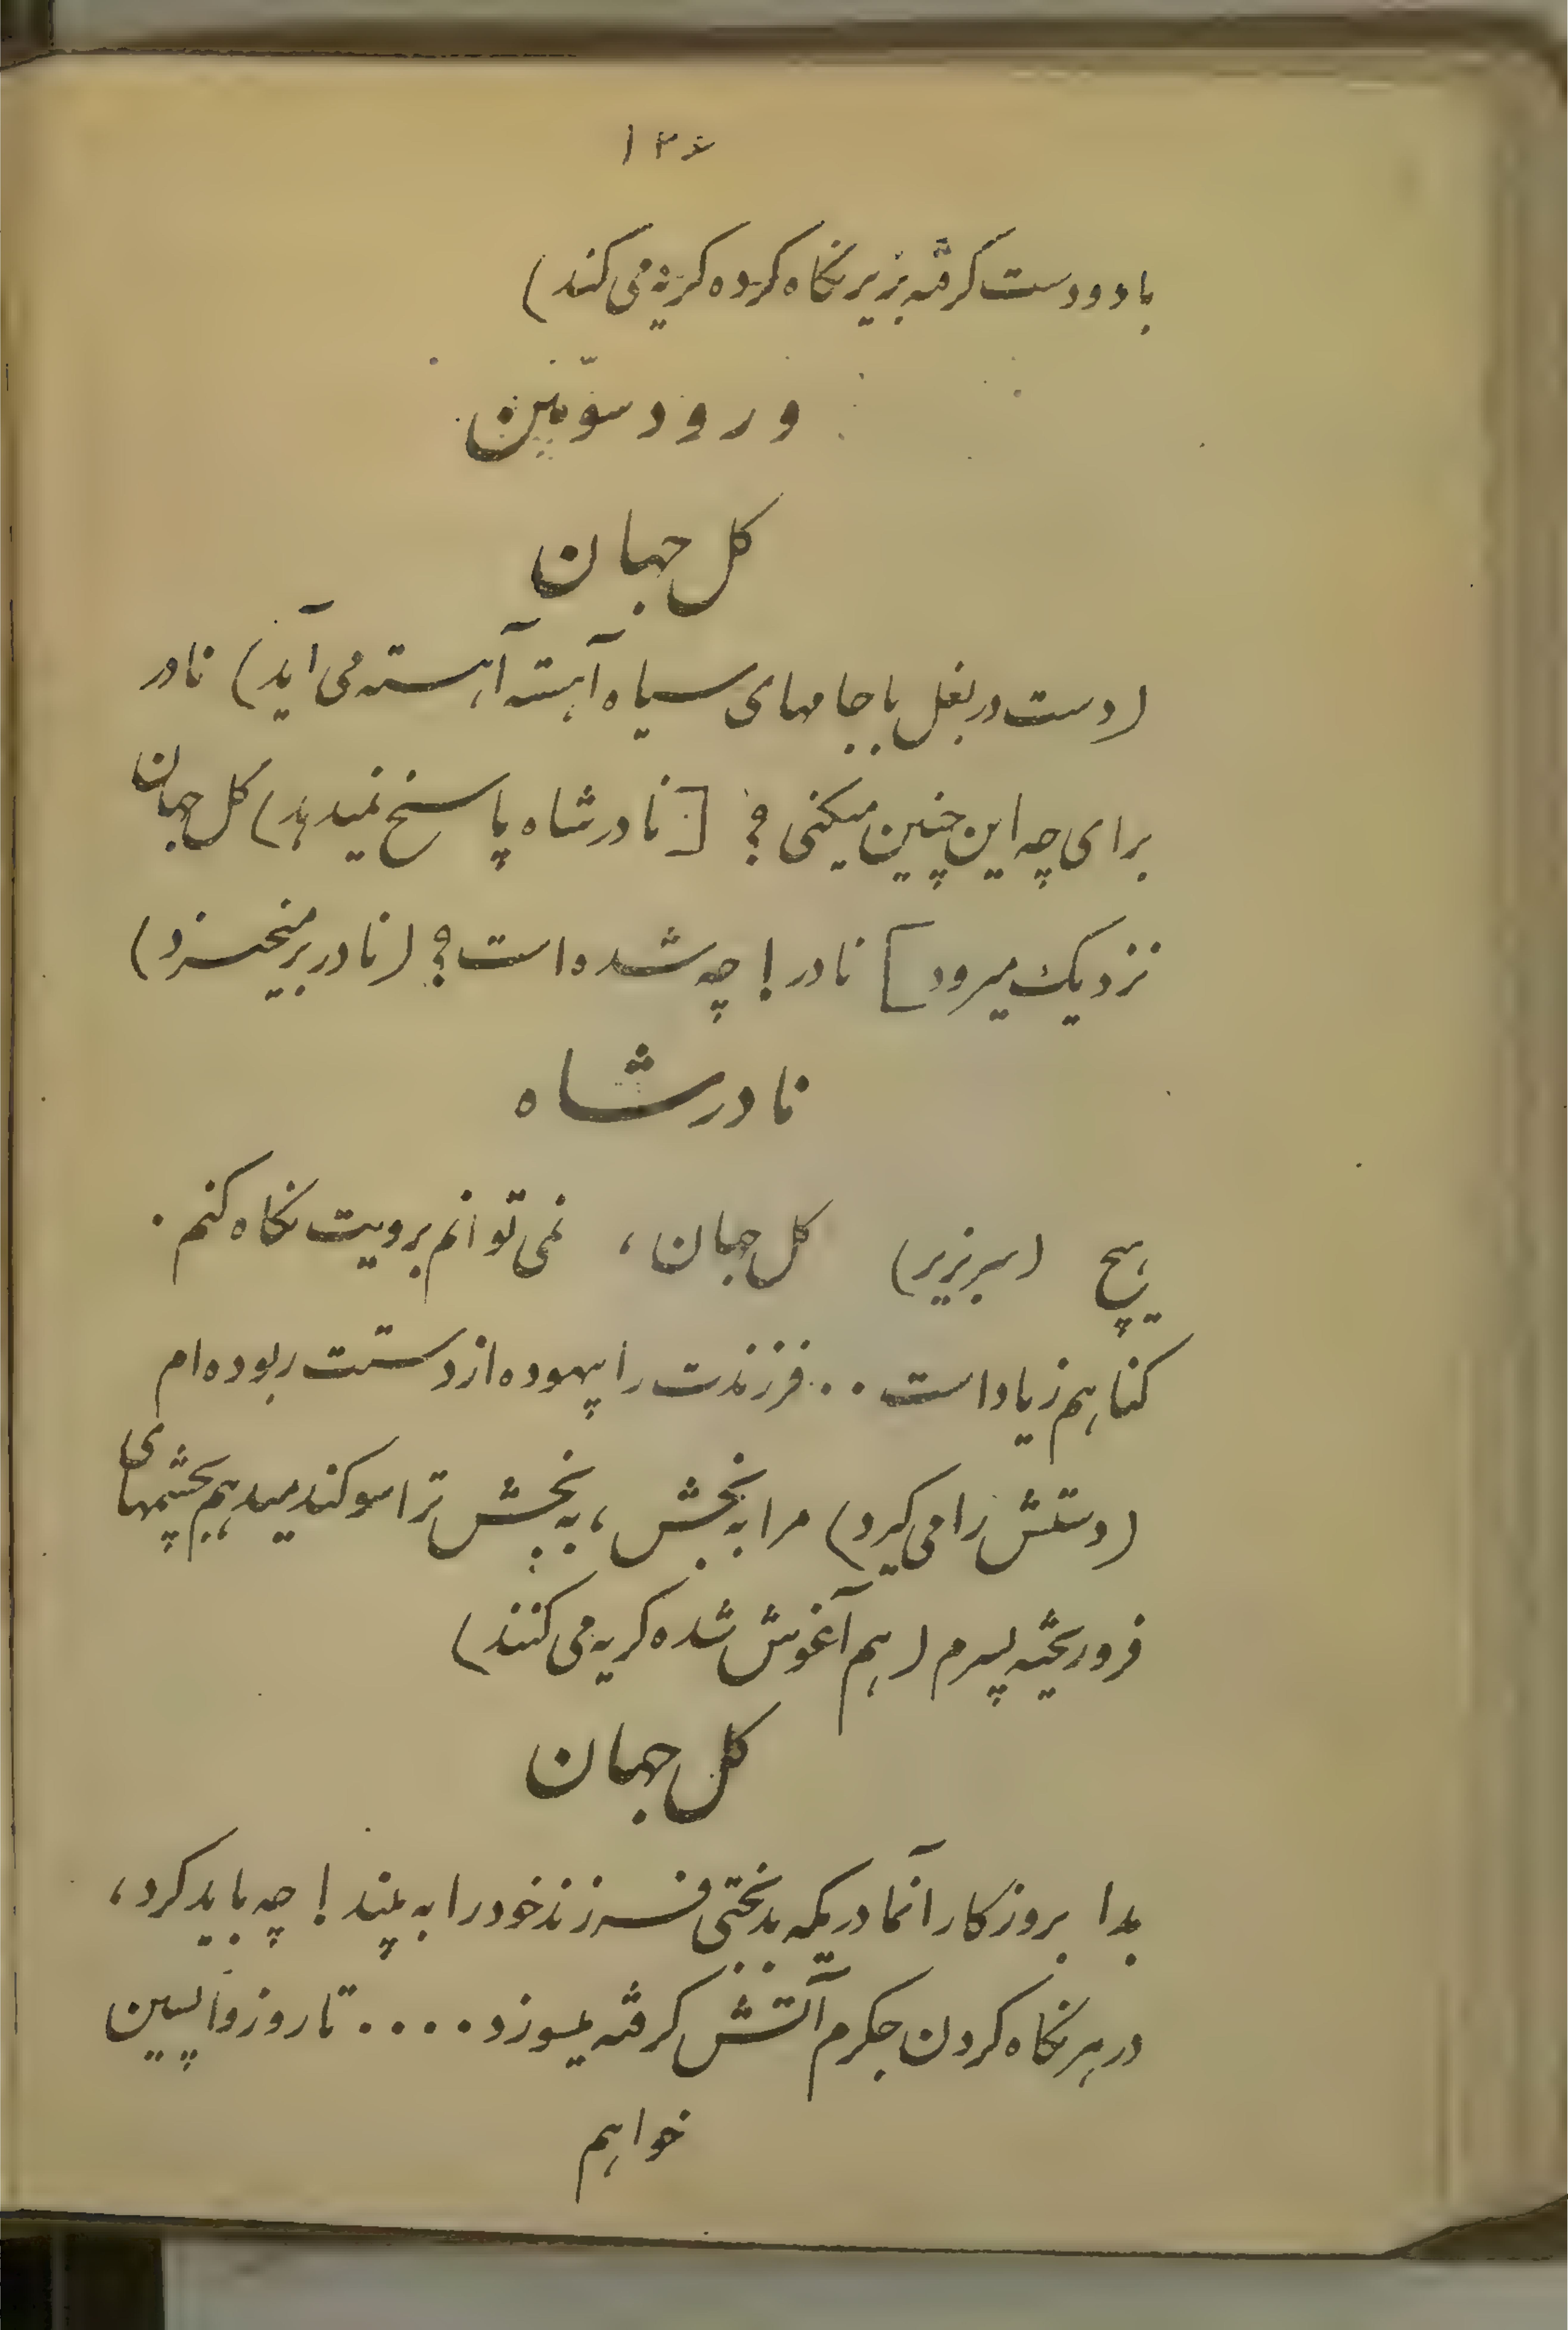 ۱۲۶
با دو دست گرفته بزیر نگاه کرده گریه می کند)
ورود سوّمین
گل جهان
(دست در بغل با جامهای سیاه آهسته آهسته می آید) نادر
برای چه این چنین میکنی؟ [نادرشاه پاسخ نمیدهد) گل جهان
نزدیک میرود] نادر! چه شده است؟ (نادر برمیخیزد)
نادرشاه
هیچ (سربزیر) گل جهان، نمی توانم برویت نگاه کنم.
گناهم زیاد است... فرزندت را بیهوده از دستت ربوده ام
(دستش را می گیرد) مرا به بخش، به بخش ترا سوگند میدهم بچشمهای
فروریخته پسرم (هم آغوش شده گریه می کنند)
گل جهان
بدا بروزگار آنمادریکه بدبختی فرزند خود را به بیند! چه باید کرد،
در هر نگاه کردن جگرم آتش گرفته میسوزد.... تا روز واپسین
خواهم